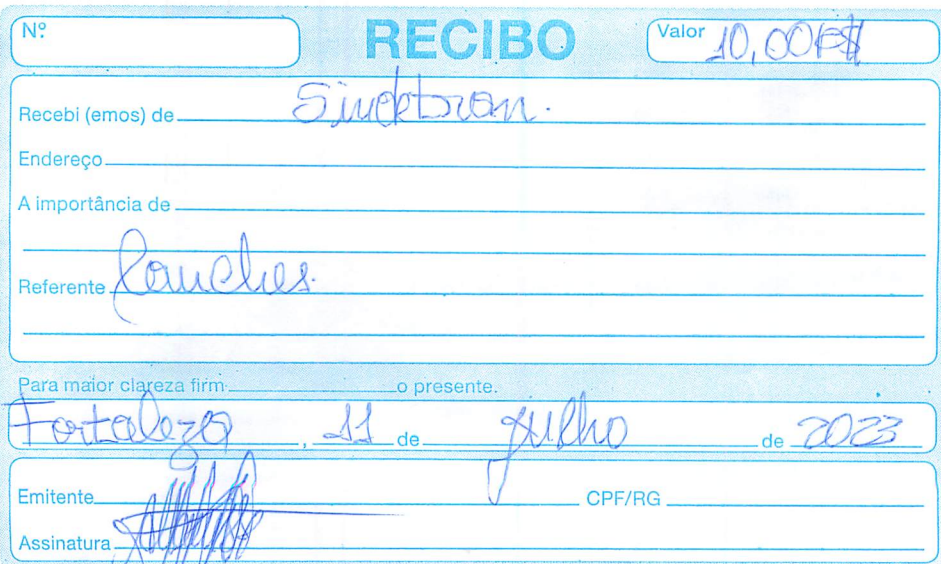 Nº RECIBO Valor 10,00R$
Recebi (emos) de Sindetran.
Endereço
A importância de
Referente Lanches.
Para maior clareza firm o presente.
Fortaleza, 11 de julho de 2023
Emitente CPF/RG
Assinatura